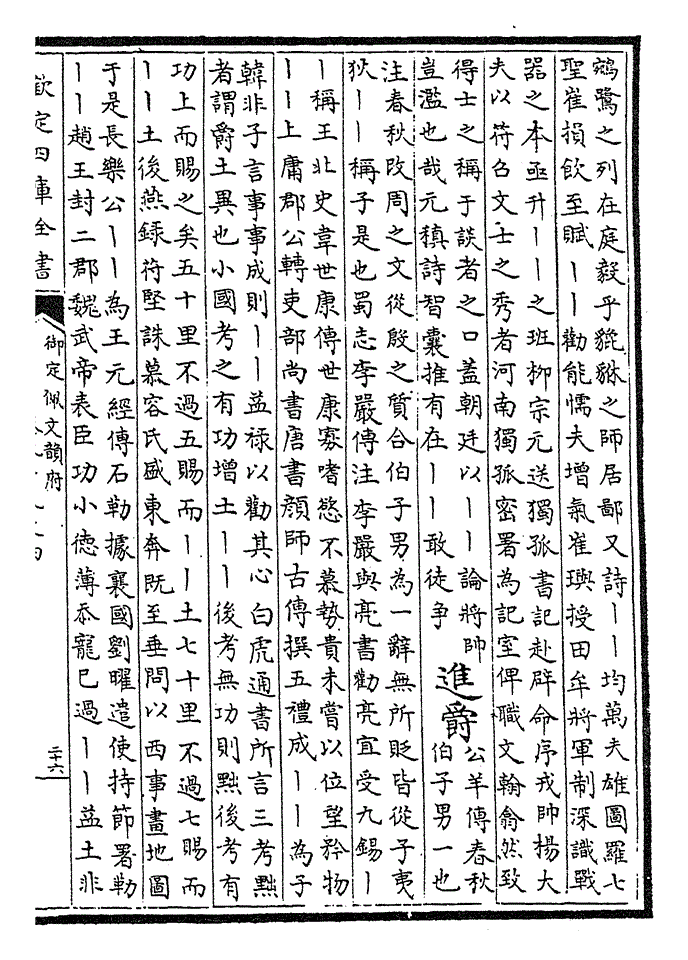 鵷鷺之列在庭毅乎貔貅之師居鄙又詩丨丨均萬夫雄圖羅七
聖崔損飲至賦丨丨勸能懦夫增氣崔璵授田牟將軍制深識戰
器之本亟升丨丨之班柳宗元送獨孤書記赴辟命序戎帥楊大
夫以符召文士之秀者河南獨孤密署為記室俾職文翰翕然致
得士之稱于談者之口蓋朝廷以丨丨論將帥
豈濫也哉元稹詩智囊推有在丨丨敢徒争
進爵
公羊傳春秋
伯子男一也
注春秋改周之文從殷之質合伯子男為一辭無所貶皆從子夷
狄丨丨稱子是也蜀志李嚴傳注李嚴與亮書勸亮宜受九錫丨
丨稱王北史韋世康傳世康寡嗜慾不慕勢貴未嘗以位望矜物
丨丨上庸郡公轉吏部尚書唐書顔師古傳撰五禮成丨丨為子
韓非子言事事成則丨丨益禄以勸其心白虎通書所言三考黜
者謂爵土異也小國考之有功增土丨丨後考無功則黜後考有
功上而賜之矣五十里不過五賜而丨丨土七十里不過七賜而
丨丨土後燕録苻堅誅慕容氏盛東奔既至垂問以西事畫地圖
于是長樂公丨丨為王元經傳石勒據襄國劉曜遣使持節署勒
丨丨趙王封二郡魏武帝表臣功小德薄忝寵已過丨丨益土非
欽定四庫全書
御定佩文韻府
二十六